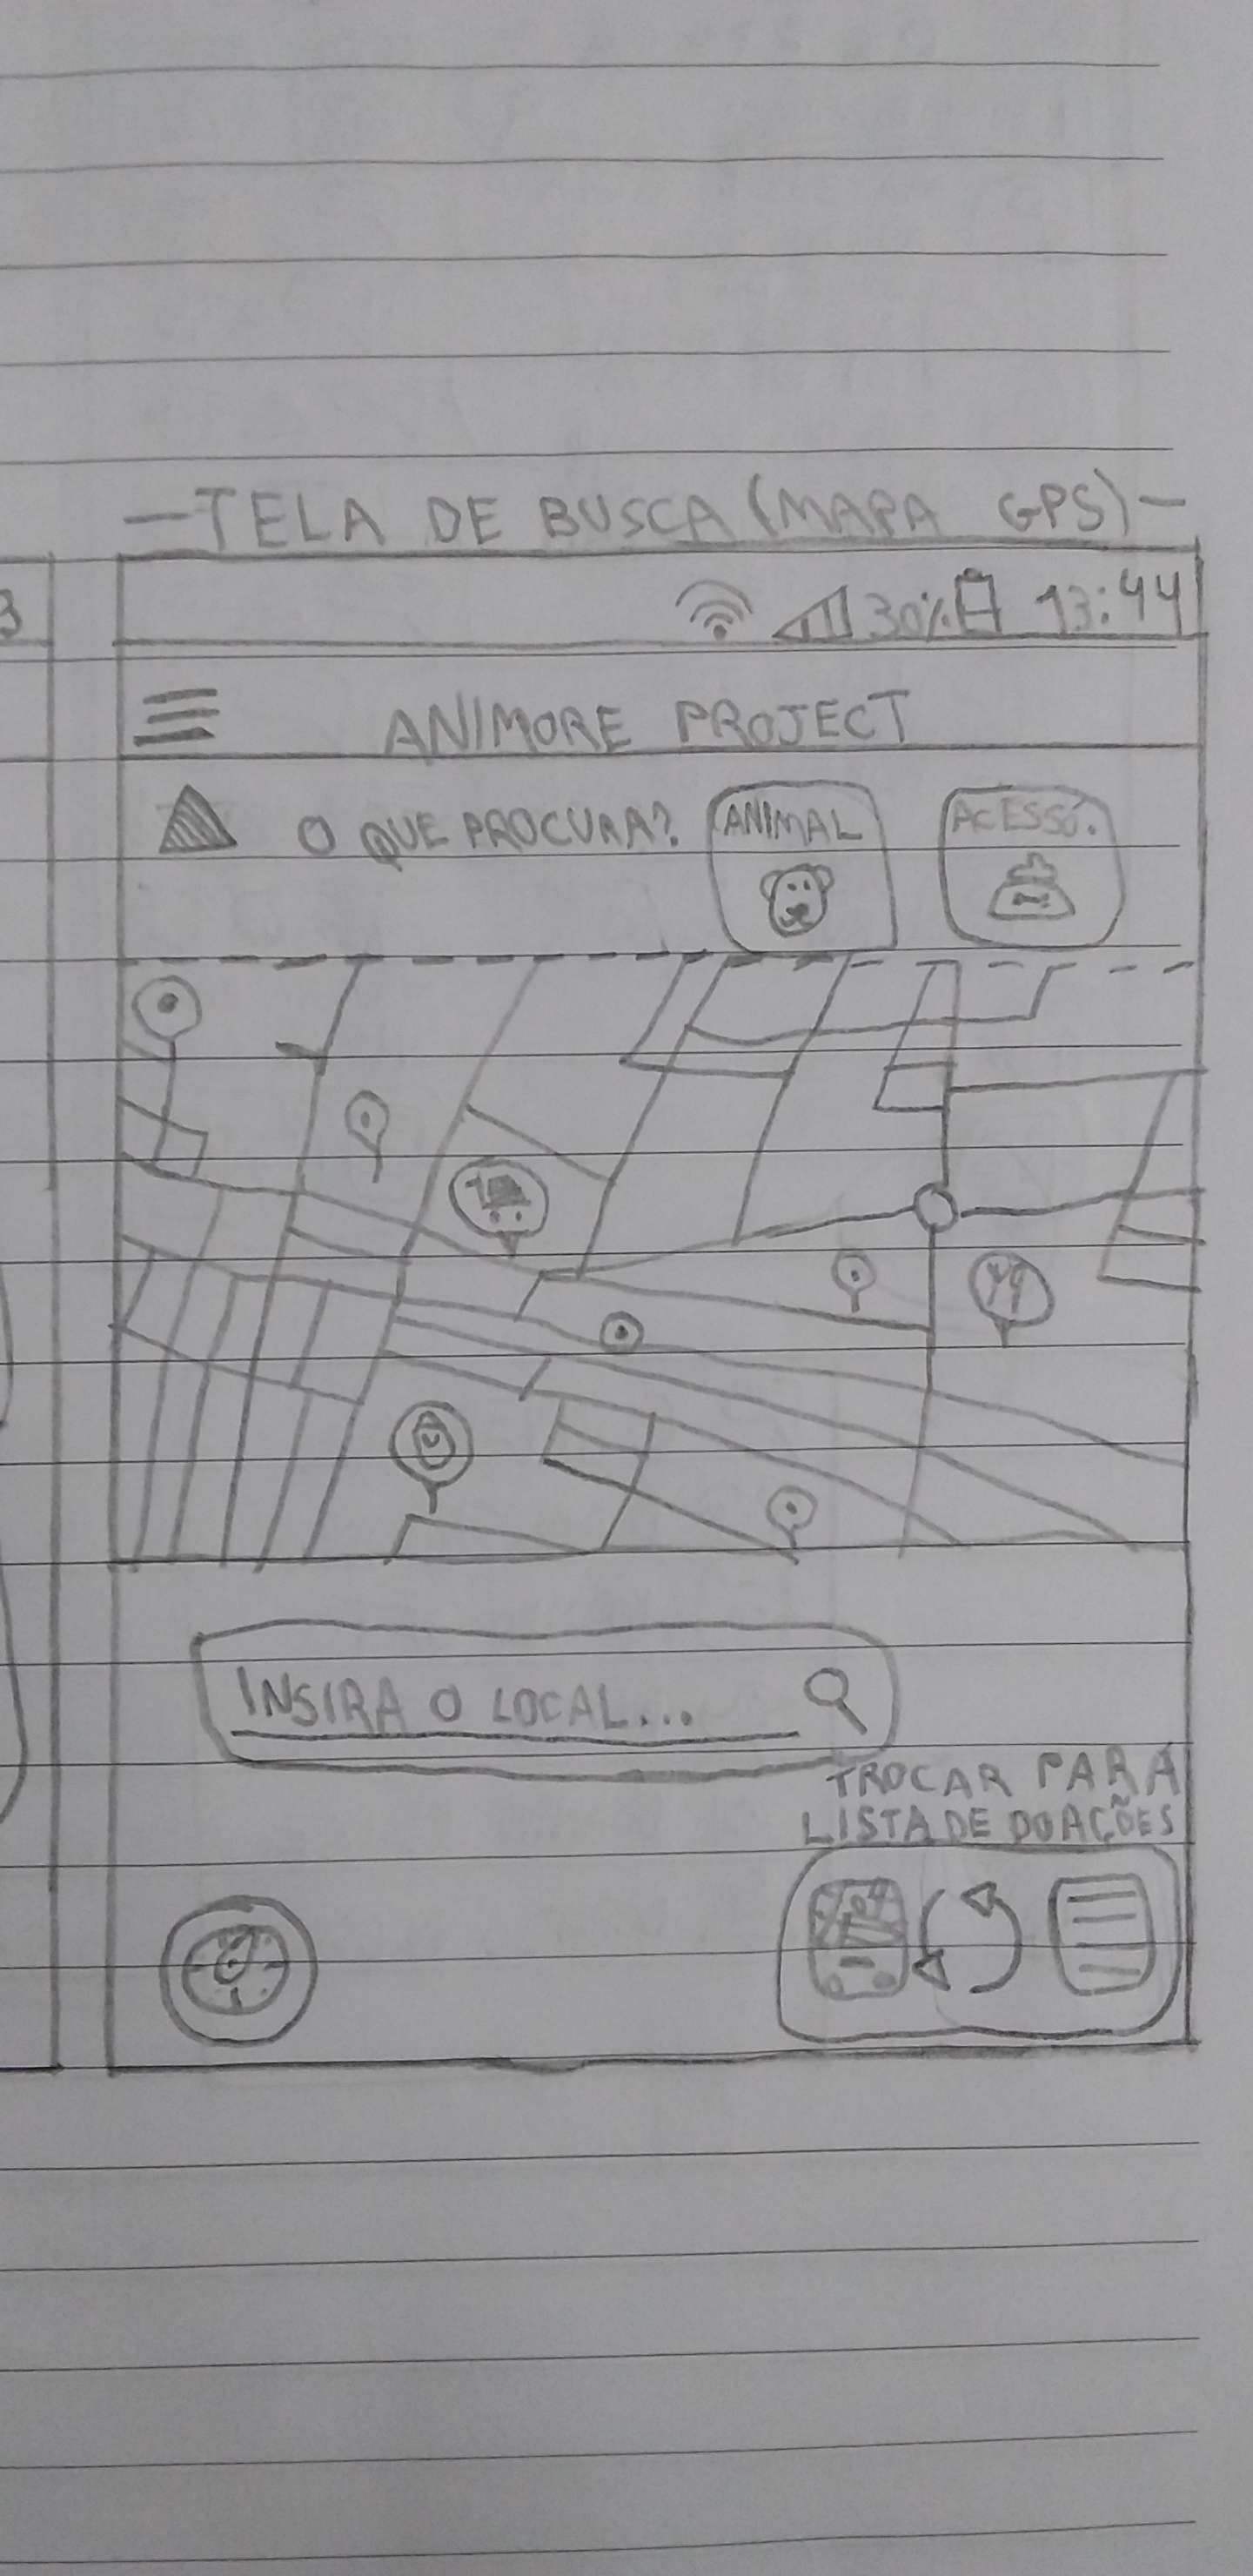 —TELA DE BUSCA (MAPA GPS)—
3
30% 13:44
ANIMORE PROJECT
O QUE PROCURA? ANIMAL ACESSÓ.
INSIRA O LOCAL...
TROCAR PARA
LISTA DE DOAÇÕES